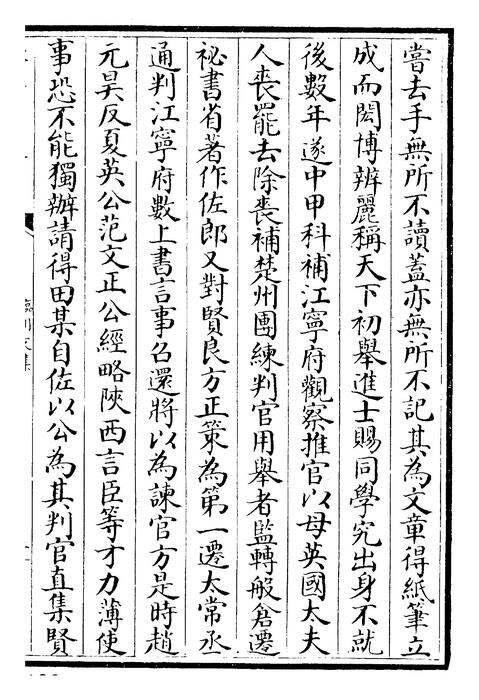 嘗去手無所不讀蓋亦無所不記其為文章得紙筆立
成而閎博辨麗稱天下初舉進士賜同學究出身不就
後數年遂中甲科補江寧府觀察推官以母英國太夫
人喪罷去除喪補楚州團練判官用舉者監轉般倉遷
祕書省著作佐郎又對賢良方正策為第一遷太常丞
通判江寧府數上書言事召還將以為諫官方是時趙
元昊反夏英公范文正公經略陝西言臣等才力薄使
事恐不能獨辦請得田某自佐以公為其判官直集賢